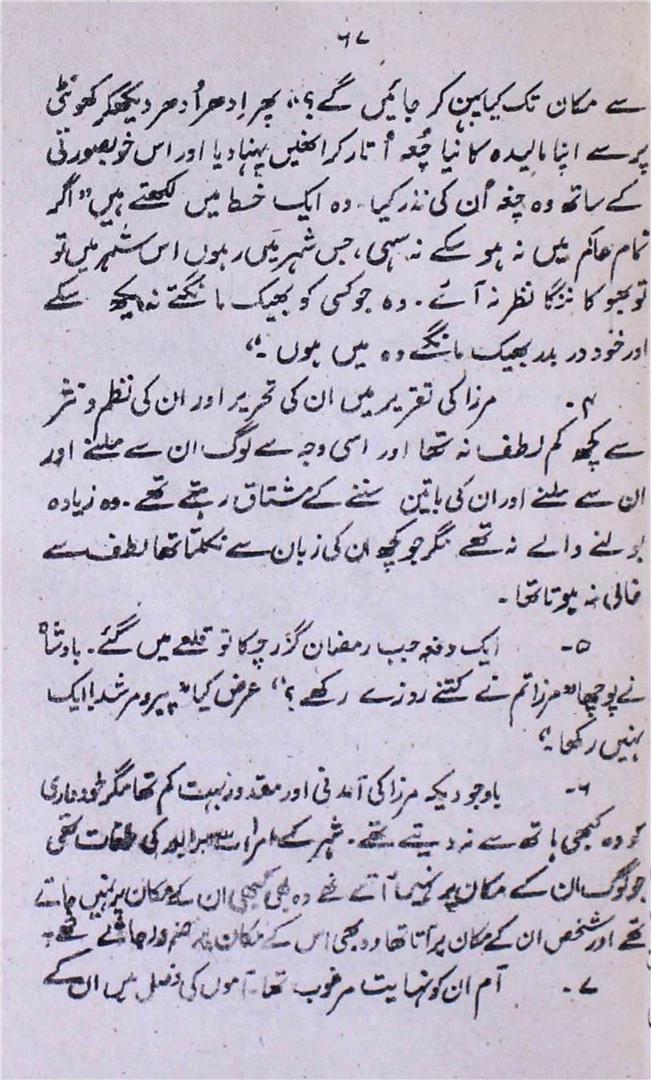 ۶۷
سے مکان تک کیا پہن کر جائیں گے؟“ پھر اِدھر اُدھر دیکھکر کھونٹی
پر سے اپنا مالیدہ کا نیا چُغہ اُتار کر انھیں پہنا دیا اور اس خوبصورتی
کے ساتھ وہ چغہ اُن کی نذر کیا۔ وہ ایک خط میں لکھتے ہیں ”اگر
تمام عالم میں نہ ہو سکے نہ سہی، جس شہر میں رہوں اس شہر میں تو
تو بھوکا ننگا نظر نہ آئے۔ وہ جو کسی کو بھیک مانگتے نہ دیکھ سکے
اور خود در بدر بھیک مانگے وہ میں ہوں۔“
۴۔ مرزا کی تقریر میں ان کی تحریر اور ان کی نظم و نثر
سے کچھ کم لطف نہ تھا اور اسی وجہ سے لوگ ان سے ملنے اور
ان سے ملنے اور ان کی باتیں سننے کے مشتاق رہتے تھے۔ وہ زیادہ
بولنے والے نہ تھے مگر جو کچھ ان کی زبان سے نکلتا تھا لطف سے
خالی نہ ہوتا تھا۔
۵۔ ایک دفعہ جب رمضان گزر چکا تو قلعے میں گئے۔ بادشاہ
نے پوچھا ”مرزا تم نے کتنے روزے رکھے؟“ عرض کیا ”پیر و مرشد! ایک
نہیں رکھا۔“
۶۔ باوجودیکہ مرزا کی آمدنی اور مقدور بہت کم تھا مگر خودداری
کو وہ کبھی ہاتھ سے نہ دیتے تھے۔ شہر کے امرا سے برابر کی ملاقات تھی
جو لوگ ان کے مکان پر نہیں آتے تھے وہ بھی کبھی ان کے مکان پر نہیں جاتے
تھے اور شخص ان کے مکان پر آتا تھا وہ بھی اس کے مکان پر ضرور جاتے تھے۔
۷۔ آم ان کو نہایت مرغوب تھا۔ آموں کی فصل میں ان کے